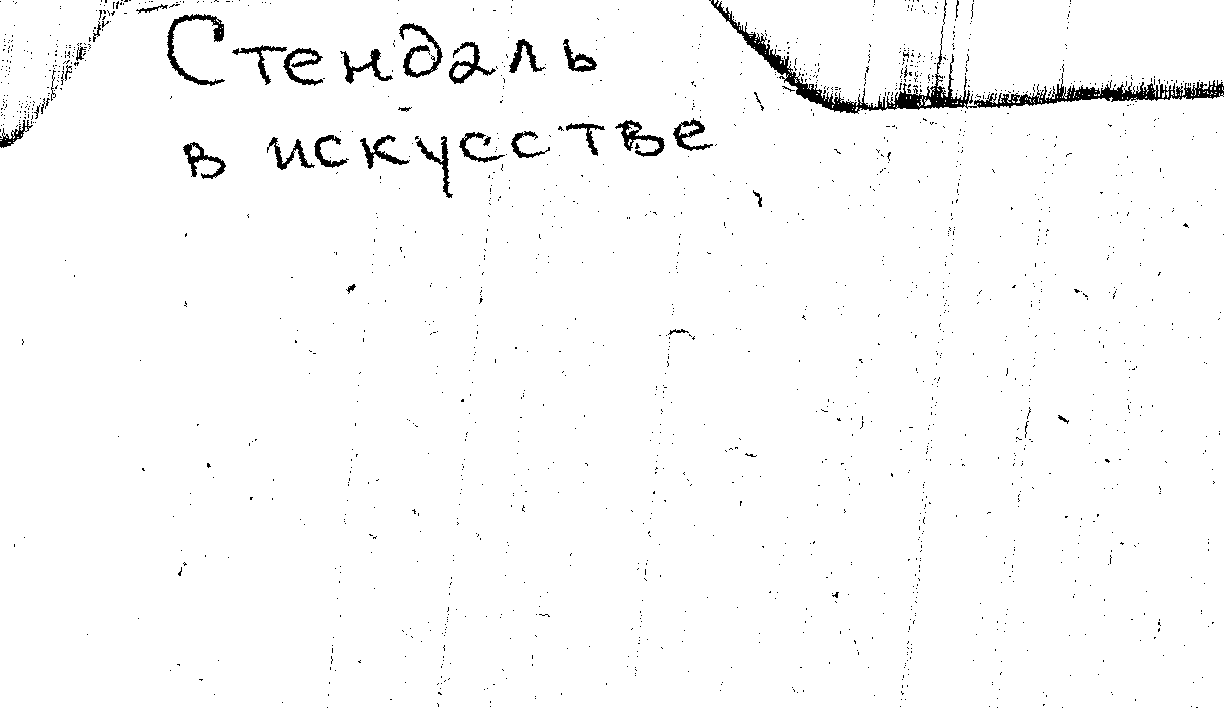 Стендаль
в искусстве